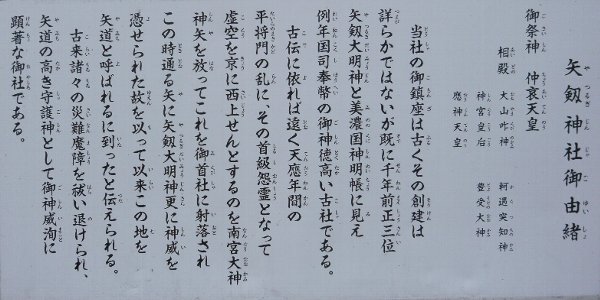 矢剱神社御由緒
御祭神 仲哀天皇
相殿 大山咋神 軻遇突知神
神宮皇后 豊受大神
應神天皇
当社の御鎮座は古くその創建は
詳らかではないが既に千年前正三位
矢剱大明神と美濃国神明帳に見え
例年国司奉幣の御神徳高い古社である。
古伝に依れば遠く天應年間の
平将門の乱に、その首級怨霊となって
虚空を京に西上せんとするのを南宮大神
神矢を放ってこれを御首社に射落され
この時通る矢に矢剱大明神更に神威を
憑せられた故を以って以来この地を
矢道と呼ばれるに到ったと伝えられる。
古来諸々の災難魔障を祓い退けられ、
矢道の高き守護神として御神威洵に
顕著な御社である。